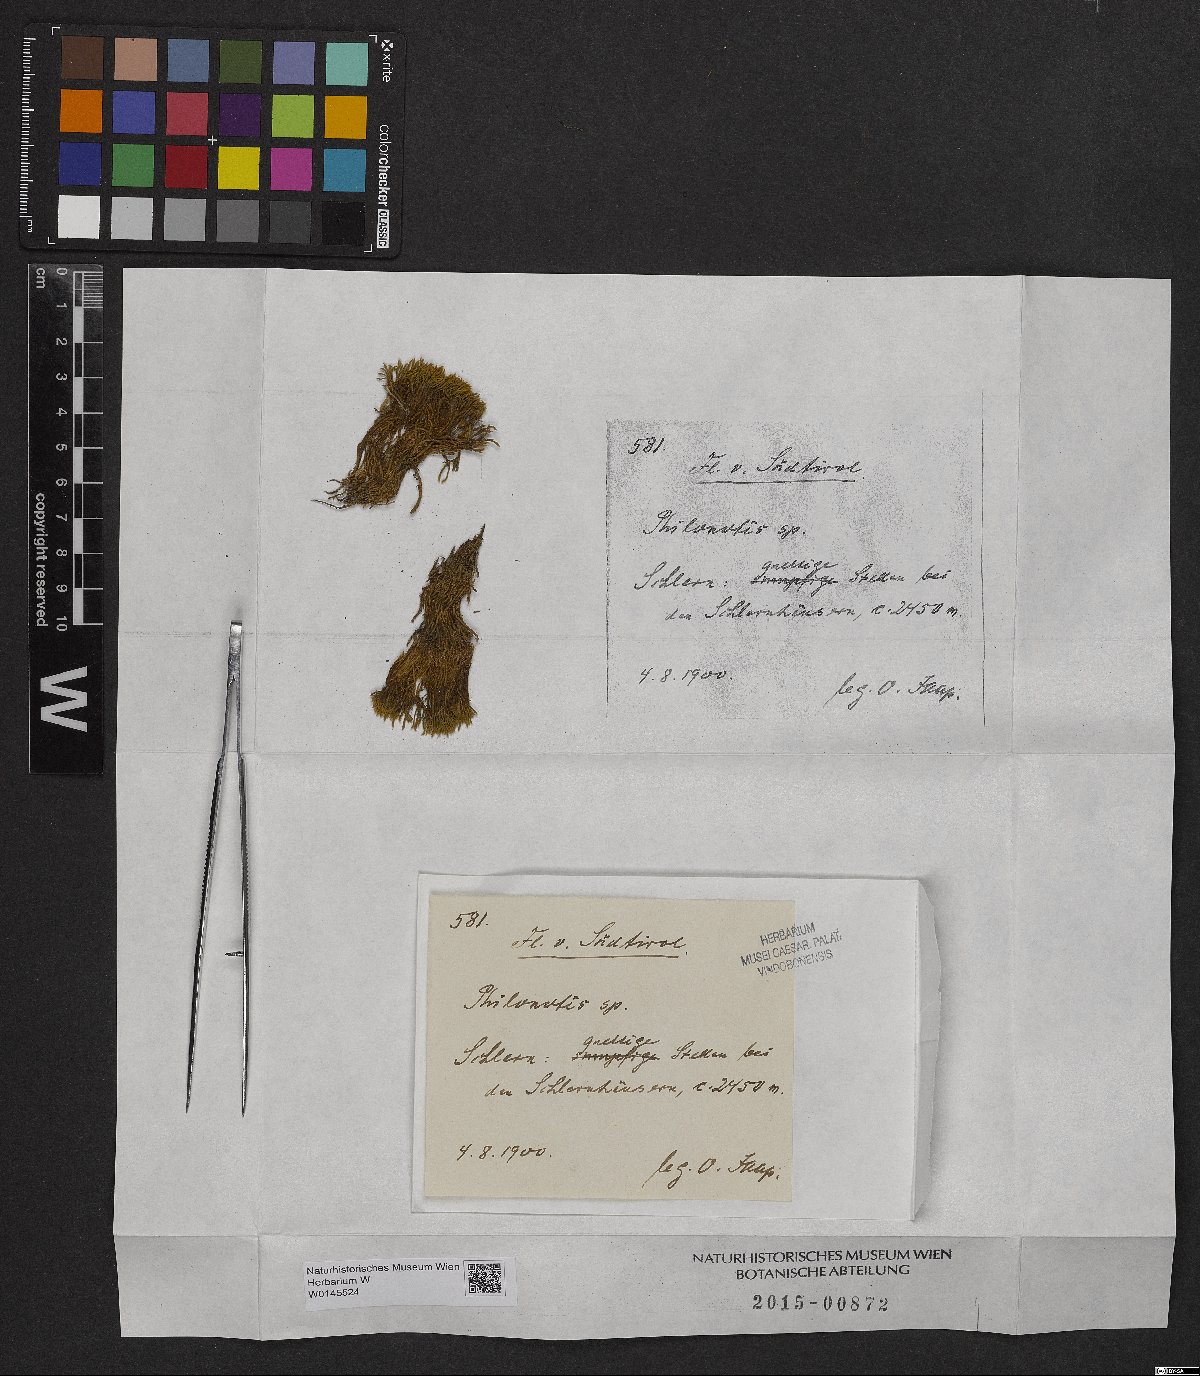 x-rite
colorchecker CLASSIC
mm
0 1 2 3 4 5 6 7 8 9 10
cm
copyright reserved
W
581.
Fl. v. Südtirol
Philonotis sp.
quellige
Schlern: sumpfige Stellen bei
den Schlernhäusern, c. 2450 m.
4.8.1900.
leg. O. Jaap.
581.
Fl. v. Südtirol
HERBARIUM
MUSEI CAESAR. PALAT.
VINDOBONENSIS
Philonotis sp.
quellige
Schlern: sumpfige Stellen bei
den Schlernhäusern, c. 2450 m.
4.8.1900.
leg. O. Jaap.
Naturhistorisches Museum Wien
Herbarium W
W0145524
NATURHISTORISCHES MUSEUM WIEN
BOTANISCHE ABTEILUNG
2015-00872
BY-SA